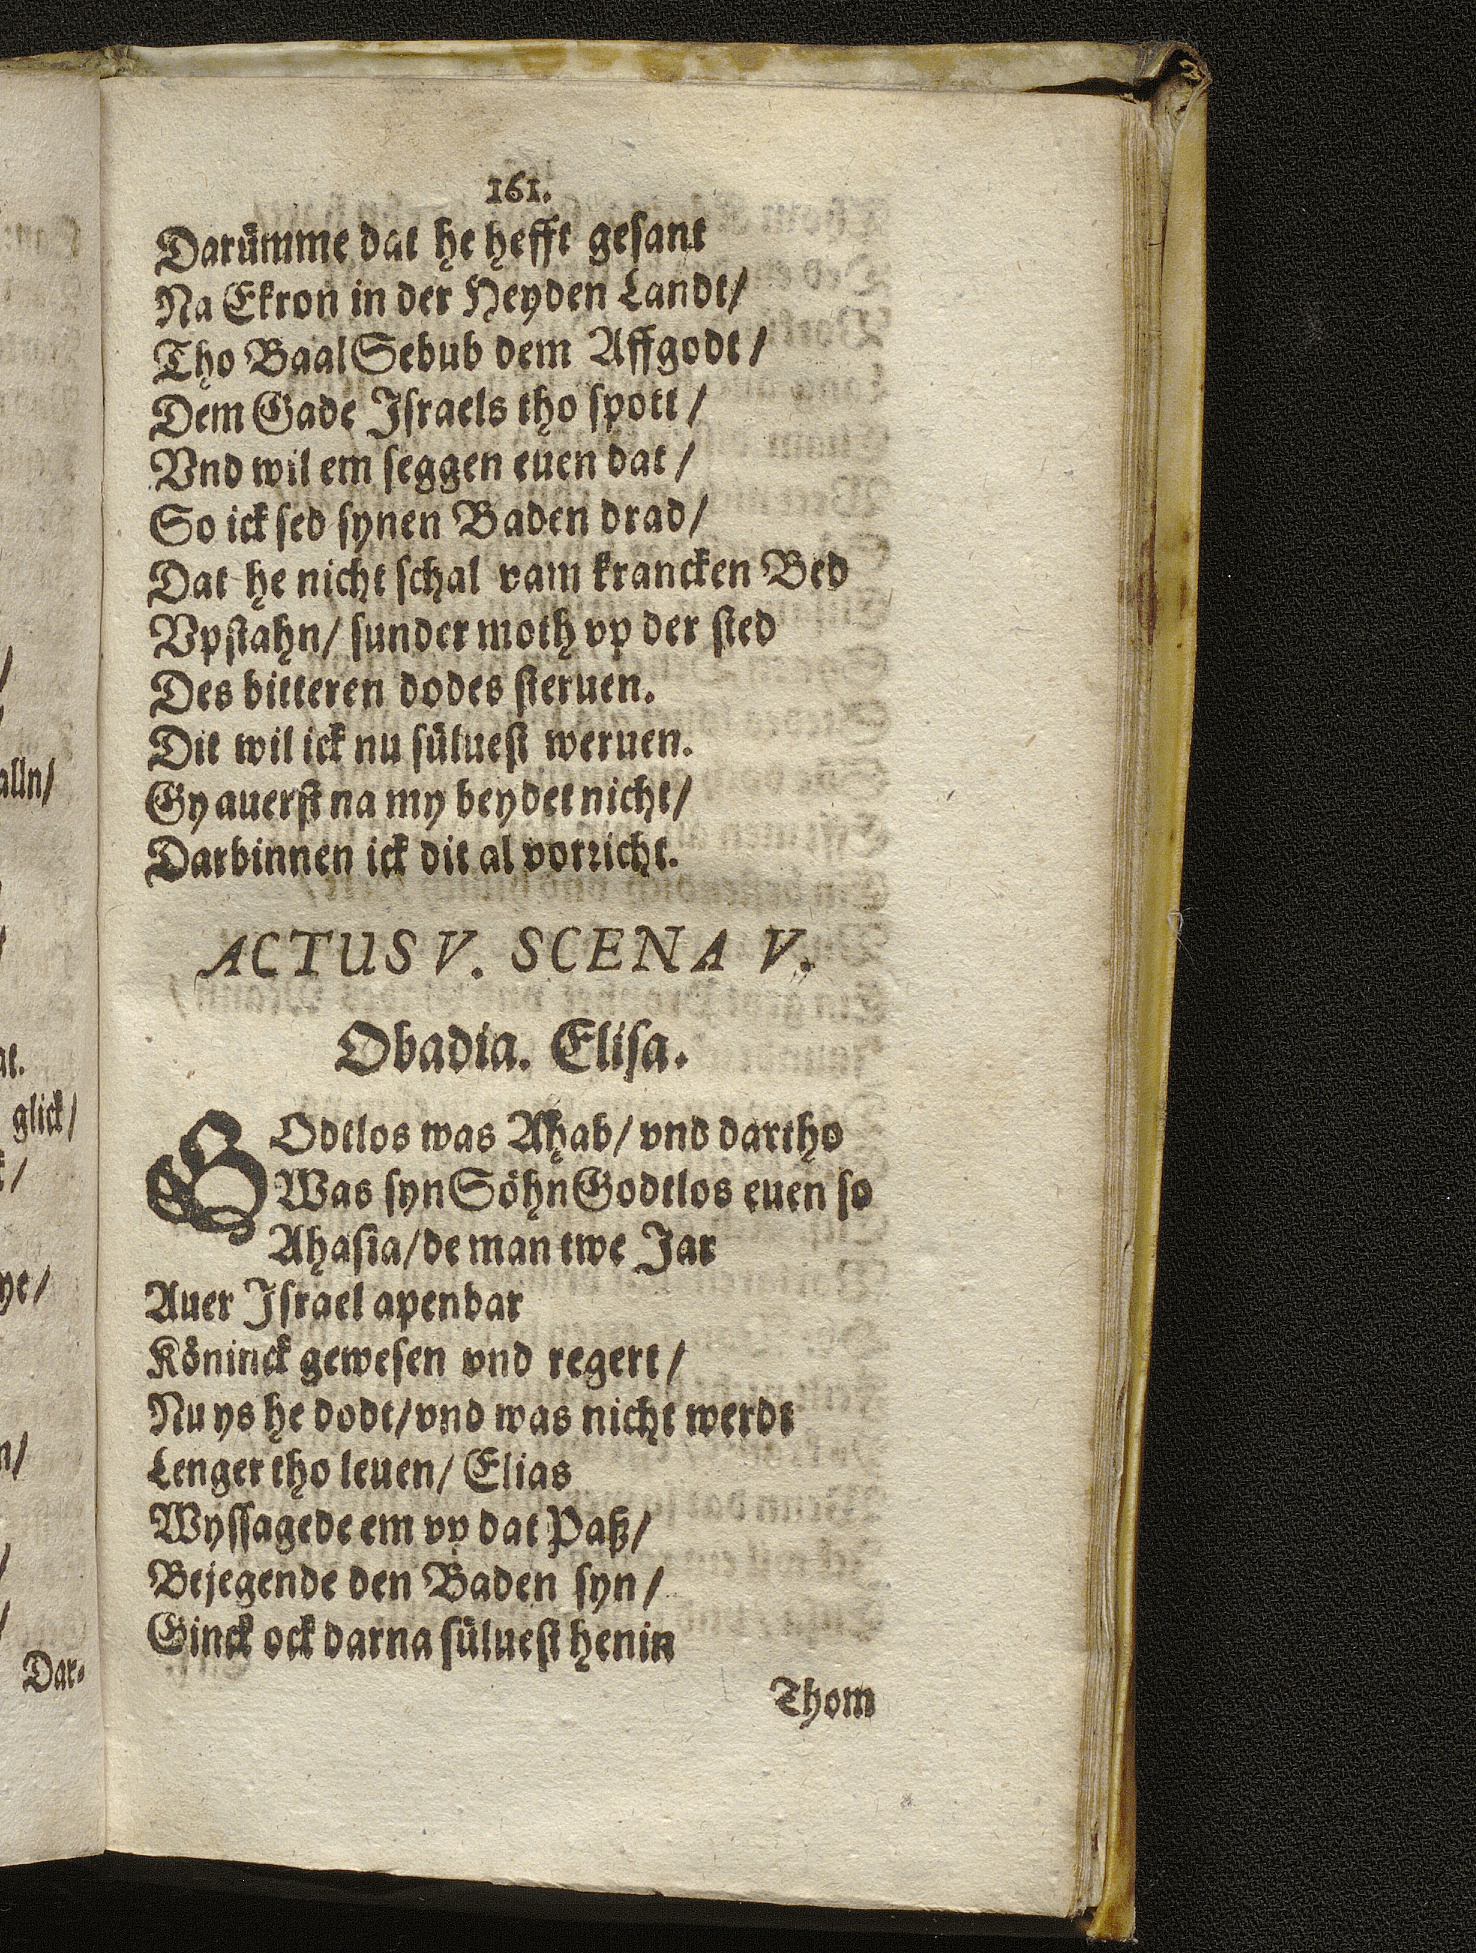 161.
Darümme dat he hefft gesant
Na Ekron in der Heyden Landt/
Tho BaalSebub dem Affgodt/
Dem Gade Jsraels tho spott/
Vnd wil em seggen euen dat/
So ick sed synen Baden drad/
Dat he nicht schal vam krancken Bed
Vpstahn/ sunder moth vp der sted
Des bitteren dodes steruen.
Dit wil ick nu süluest weruen.
Gy auerst na my beydet nicht/
Darbinnen ick dit al vorricht.
ACTUS V. SCENA V.
Obadia. Elisa.
GOdtlos was Ahab/ vnd dartho
Was syn Söhn Godtlos euen so
Ahasia/ de man twe Jar
Auer Jsrael apenbar
Köninck gewesen vnd regert/
Nu ys he dodt/ vnd was nicht werdt
Lenger tho leuen/ Elias
Wyssagede em vp dat Paß/
Bejegende den Baden syn/
Ginck ock darna süluest henin
Thom
alln/
at.
glick/
ye/
n/
Dar-